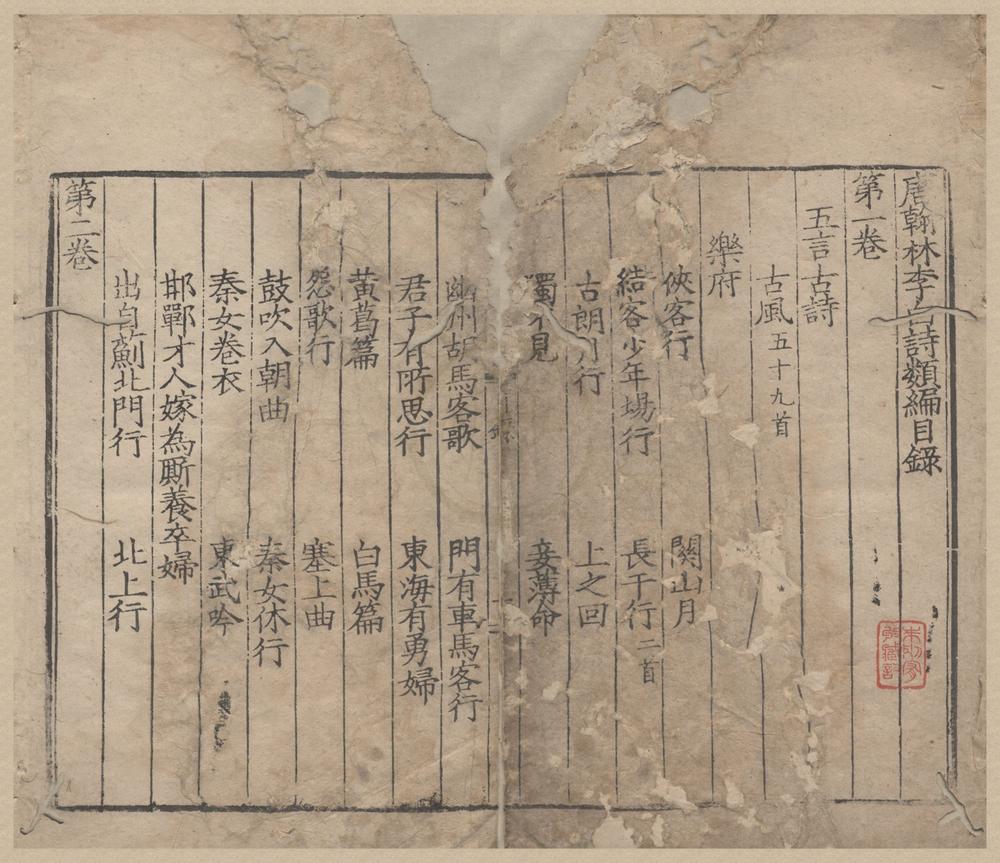 唐翰林李白詩類編目錄
第一卷
五言古詩
古風五十九首
樂府
俠客行 關山月
結客少年場行 長干行二首
古朗月行 上之回
獨不見 妾薄命
幽州胡馬客歌 門有車馬客行
君子有所思行 東海有勇婦
黃葛篇 白馬篇
怨歌行 塞上曲
鼓吹入朝曲 秦女休行
秦女卷衣 東武吟
邯鄲才人嫁為厮養卒婦
出自薊北門行 北上行
第二卷